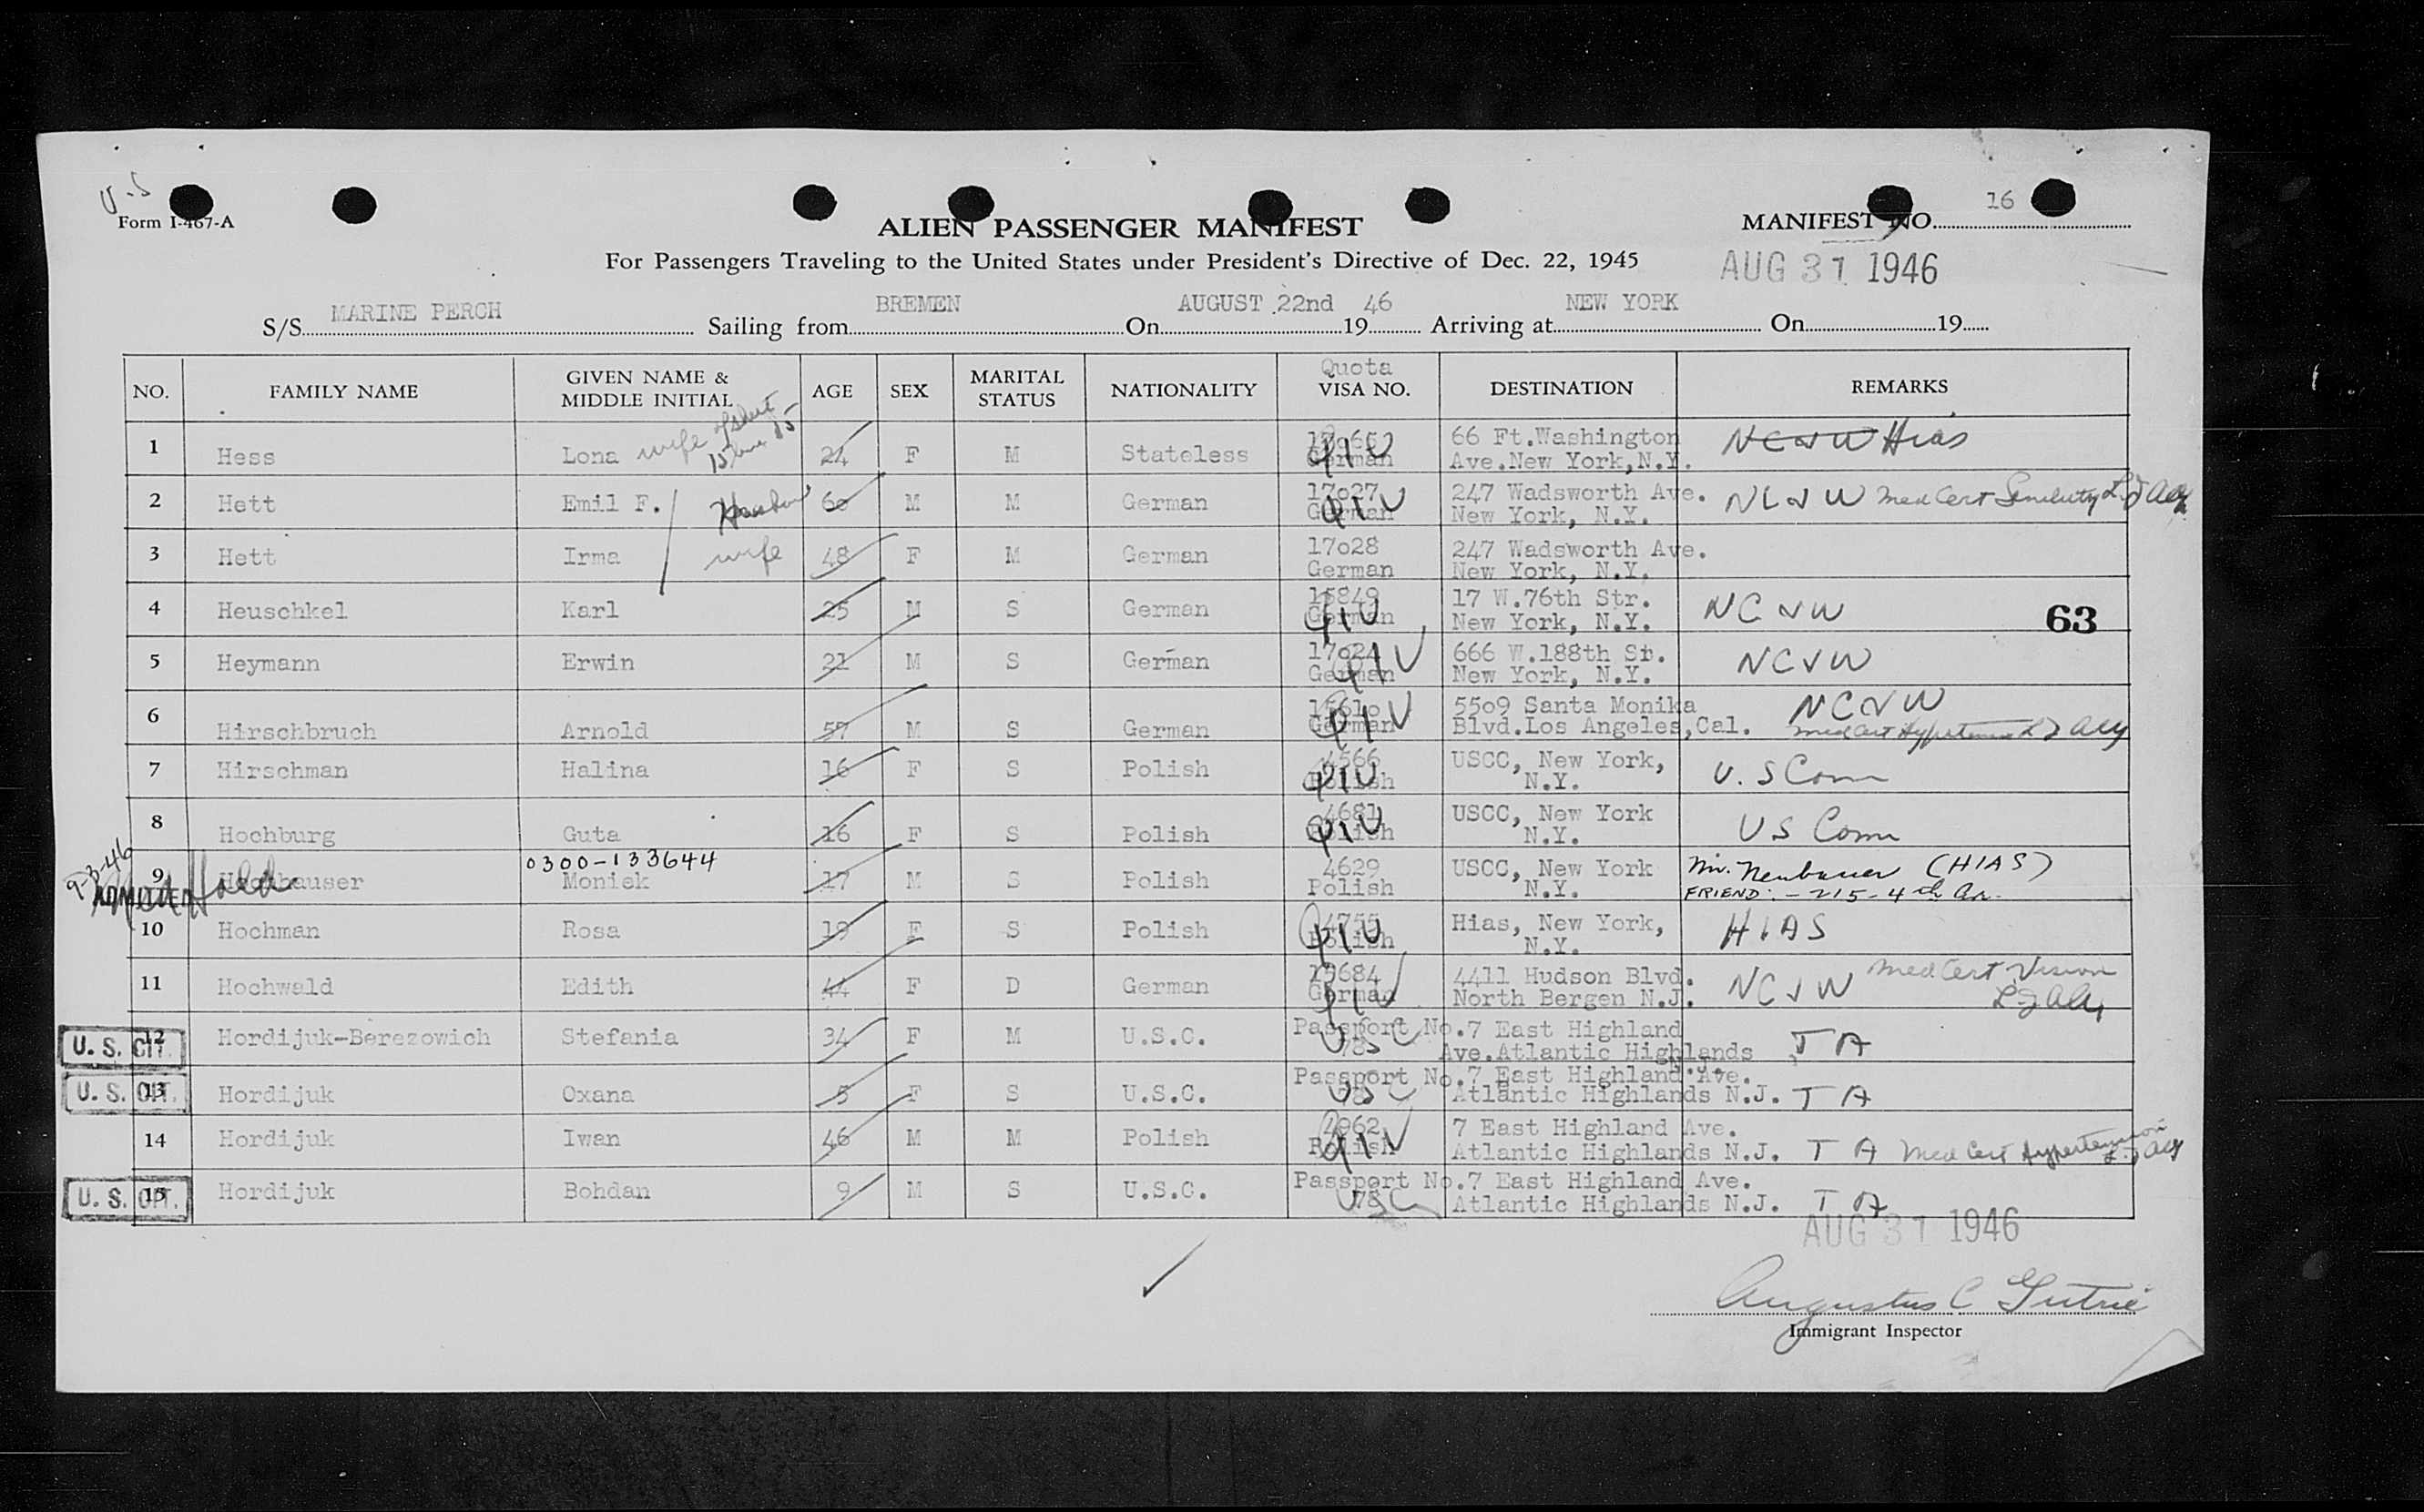 U.S
Form I-467-A
ALIEN PASSENGER MANIFEST
MANIFEST NO. 16
For Passengers Traveling to the United States under President's Directive of Dec. 22, 1945
AUG 31 1946
S/S MARINE PERCH Sailing from BREMEN On AUGUST 22nd 1946 Arriving at NEW YORK On 19
NO. FAMILY NAME GIVEN NAME & MIDDLE INITIAL AGE SEX MARITAL STATUS NATIONALITY Quota VISA NO. DESTINATION REMARKS
1 Hess Lona wife 24 F M Stateless German QIV 66 Ft.Washington Ave.New York,N.Y. NCJW Hias
2 Hett Emil F. 60 M M German 17027 German QIV 247 Wadsworth Ave. New York, N.Y. NCJW Med Cert Senility
3 Hett Irma wife 48 F M German 17028 German 247 Wadsworth Ave. New York, N.Y.
4 Heuschkel Karl 25 M S German 15849 German QIV 17 W.76th Str. New York, N.Y. NCJW
63
5 Heymann Erwin 21 M S German 17024 German QIV 666 W.188th St. New York, N.Y. NCJW
6 Hirschbruch Arnold 57 M S German 15610 German QIV 5509 Santa Monika Blvd.Los Angeles,Cal. NCJW Med Cert Hypertension
7 Hirschman Halina 16 F S Polish 4566 Polish QIV USCC, New York, N.Y. U.S Comm
8 Hochburg Guta 16 F S Polish 4681 Polish QIV USCC, New York N.Y. US Comm
9-3-46
ADMITTED Held
0300-133644
9 Hochhauser Moniek 17 M S Polish 4629 Polish USCC, New York N.Y. Mr. Neubauer (HIAS)
FRIEND: - 215 - 4th Av.
10 Hochman Rosa 19 F S Polish 4755 Polish QIV Hias, New York, N.Y. HIAS
11 Hochwald Edith 44 F D German 15684 German QIV 4411 Hudson Blvd. North Bergen N.J. NCJW Med Cert Vision
U. S. CIT. 12 Hordijuk-Berezowich Stefania 34 F M U.S.C. Passport No. 78 USC 7 East Highland Ave.Atlantic Highlands N.J. TA
U. S. CIT. 13 Hordijuk Oxana 5 F S U.S.C. Passport No. 78 USC 7 East Highland Ave. Atlantic Highlands N.J. TA
14 Hordijuk Iwan 46 M M Polish 2962 Polish QIV 7 East Highland Ave. Atlantic Highlands N.J. TA Med Cert Hypertension
U. S. CIT. 15 Hordijuk Bohdan 9 M S U.S.C. Passport No. 78 USC 7 East Highland Ave. Atlantic Highlands N.J. TA
AUG 31 1946
Augustus C Gutrie
Immigrant Inspector